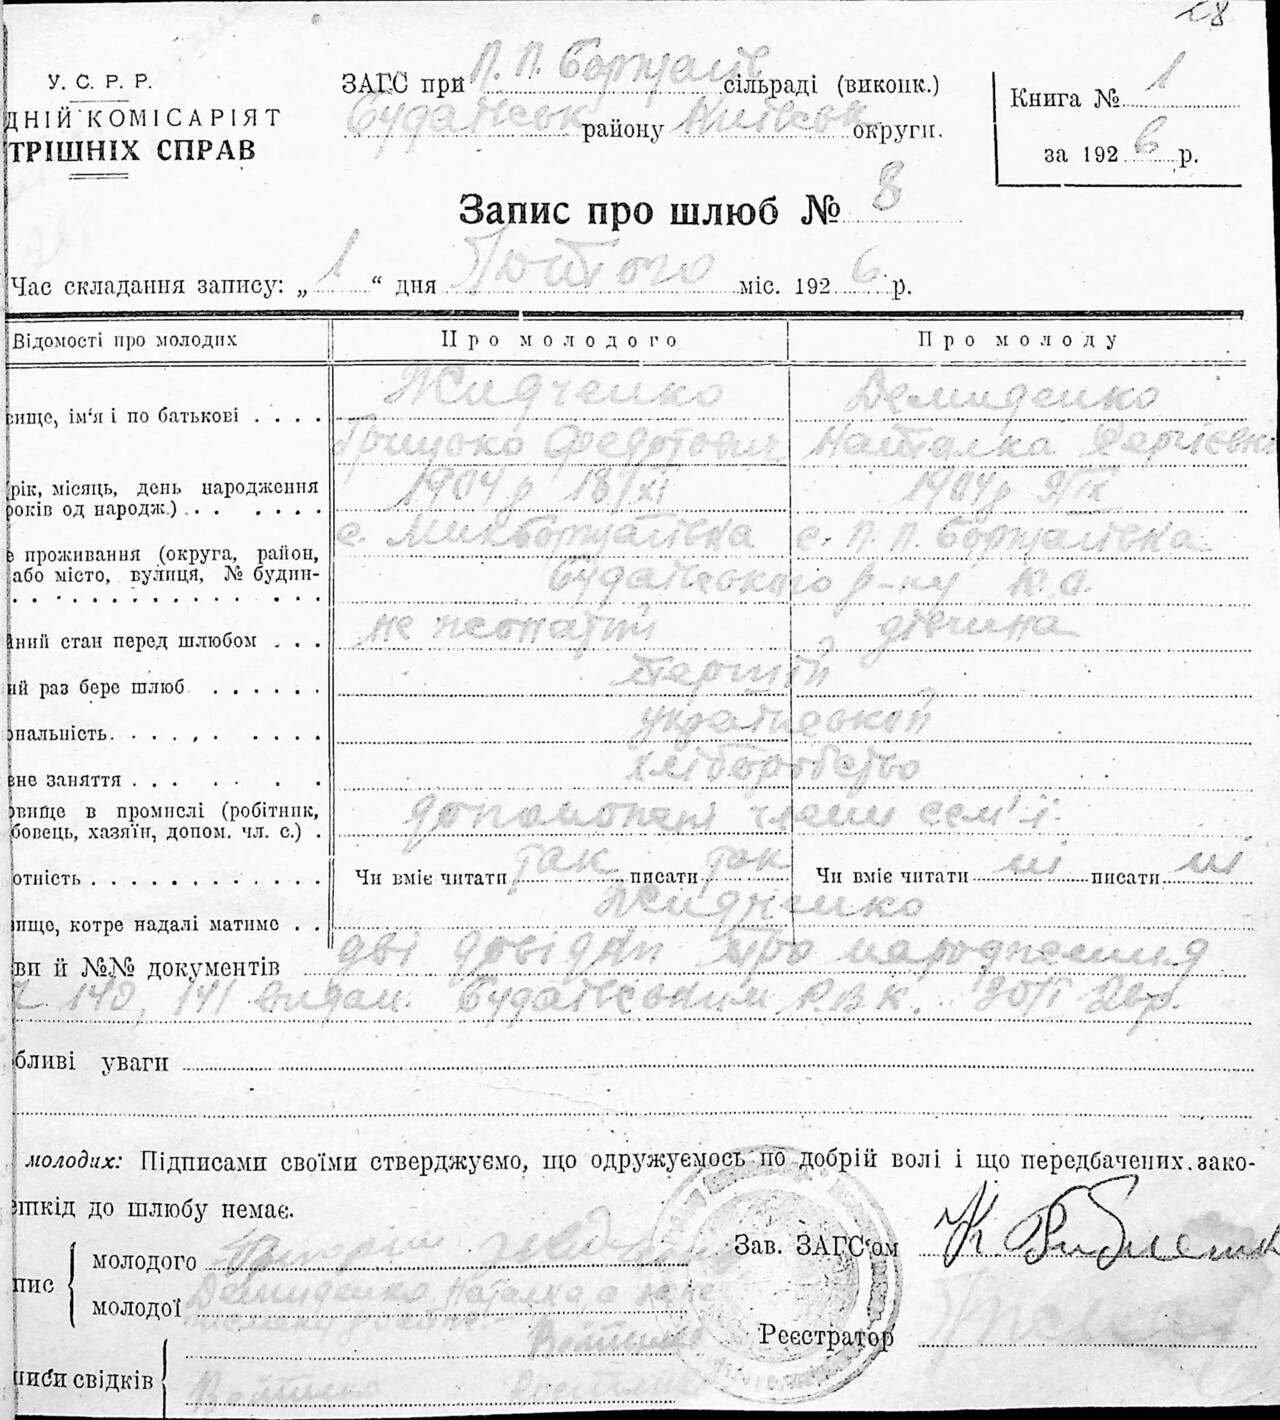 28
У. С. Р. Р.
ДНІЙ КОМІСАРІЯТ
ТРІШНІХ СПРАВ
ЗАГС при П. П. Боржаїв сільраді (виконк.)
Будаївськ району Київськ округи.
Книга № 1
за 1926 р.
Запис про шлюб № 8
Час складання запису: „ 1 “ дня Лютого міс. 1926 р.
Відомості про молодих Про молодого Про молоду
вище, ім'я і по батькові . . . . Жидченко Демиденко
Грицько Федотович Наталка Сергієвна
рік, місяць, день народження 1904 р 18/XI 1904 р 9/IX
років од народж.) . . . . . .
е проживання (округа, район, с. Мик Боржаївка с. П. П. Боржаївка
або місто, вулиця, № будин- Будаївського р-ну К. О.
ний стан перед шлюбом . . . не жонатий дівчина
ий раз бере шлюб . . . . . . перший
ональність. . . . . . . . . української
вне заняття . . . . . . . хліборобство
овище в промислі (робітник, допомонаючі члени сем'ї.
бовець, хазяїн, допом. чл. с.) .
отність . . . . . . . . . . . . Чи вміє читати так писати так Чи вміє читати ні писати ні
ище, котре надалі матиме . . Жидченко
ви й №№ документів дві довідки про народження
140, 141 видан. Будаївським Р.В.К. 30/I 26 р.
бливі уваги
молодих: Підписами своїми стверджуємо, що одружуємось по добрій волі і що передбачених зако-
шкід до шлюбу немає.
пис молодого Григорій
молодої Демиденко Наталка а за не
Зав. ЗАГС'ом
Реєстратор
писи свідків